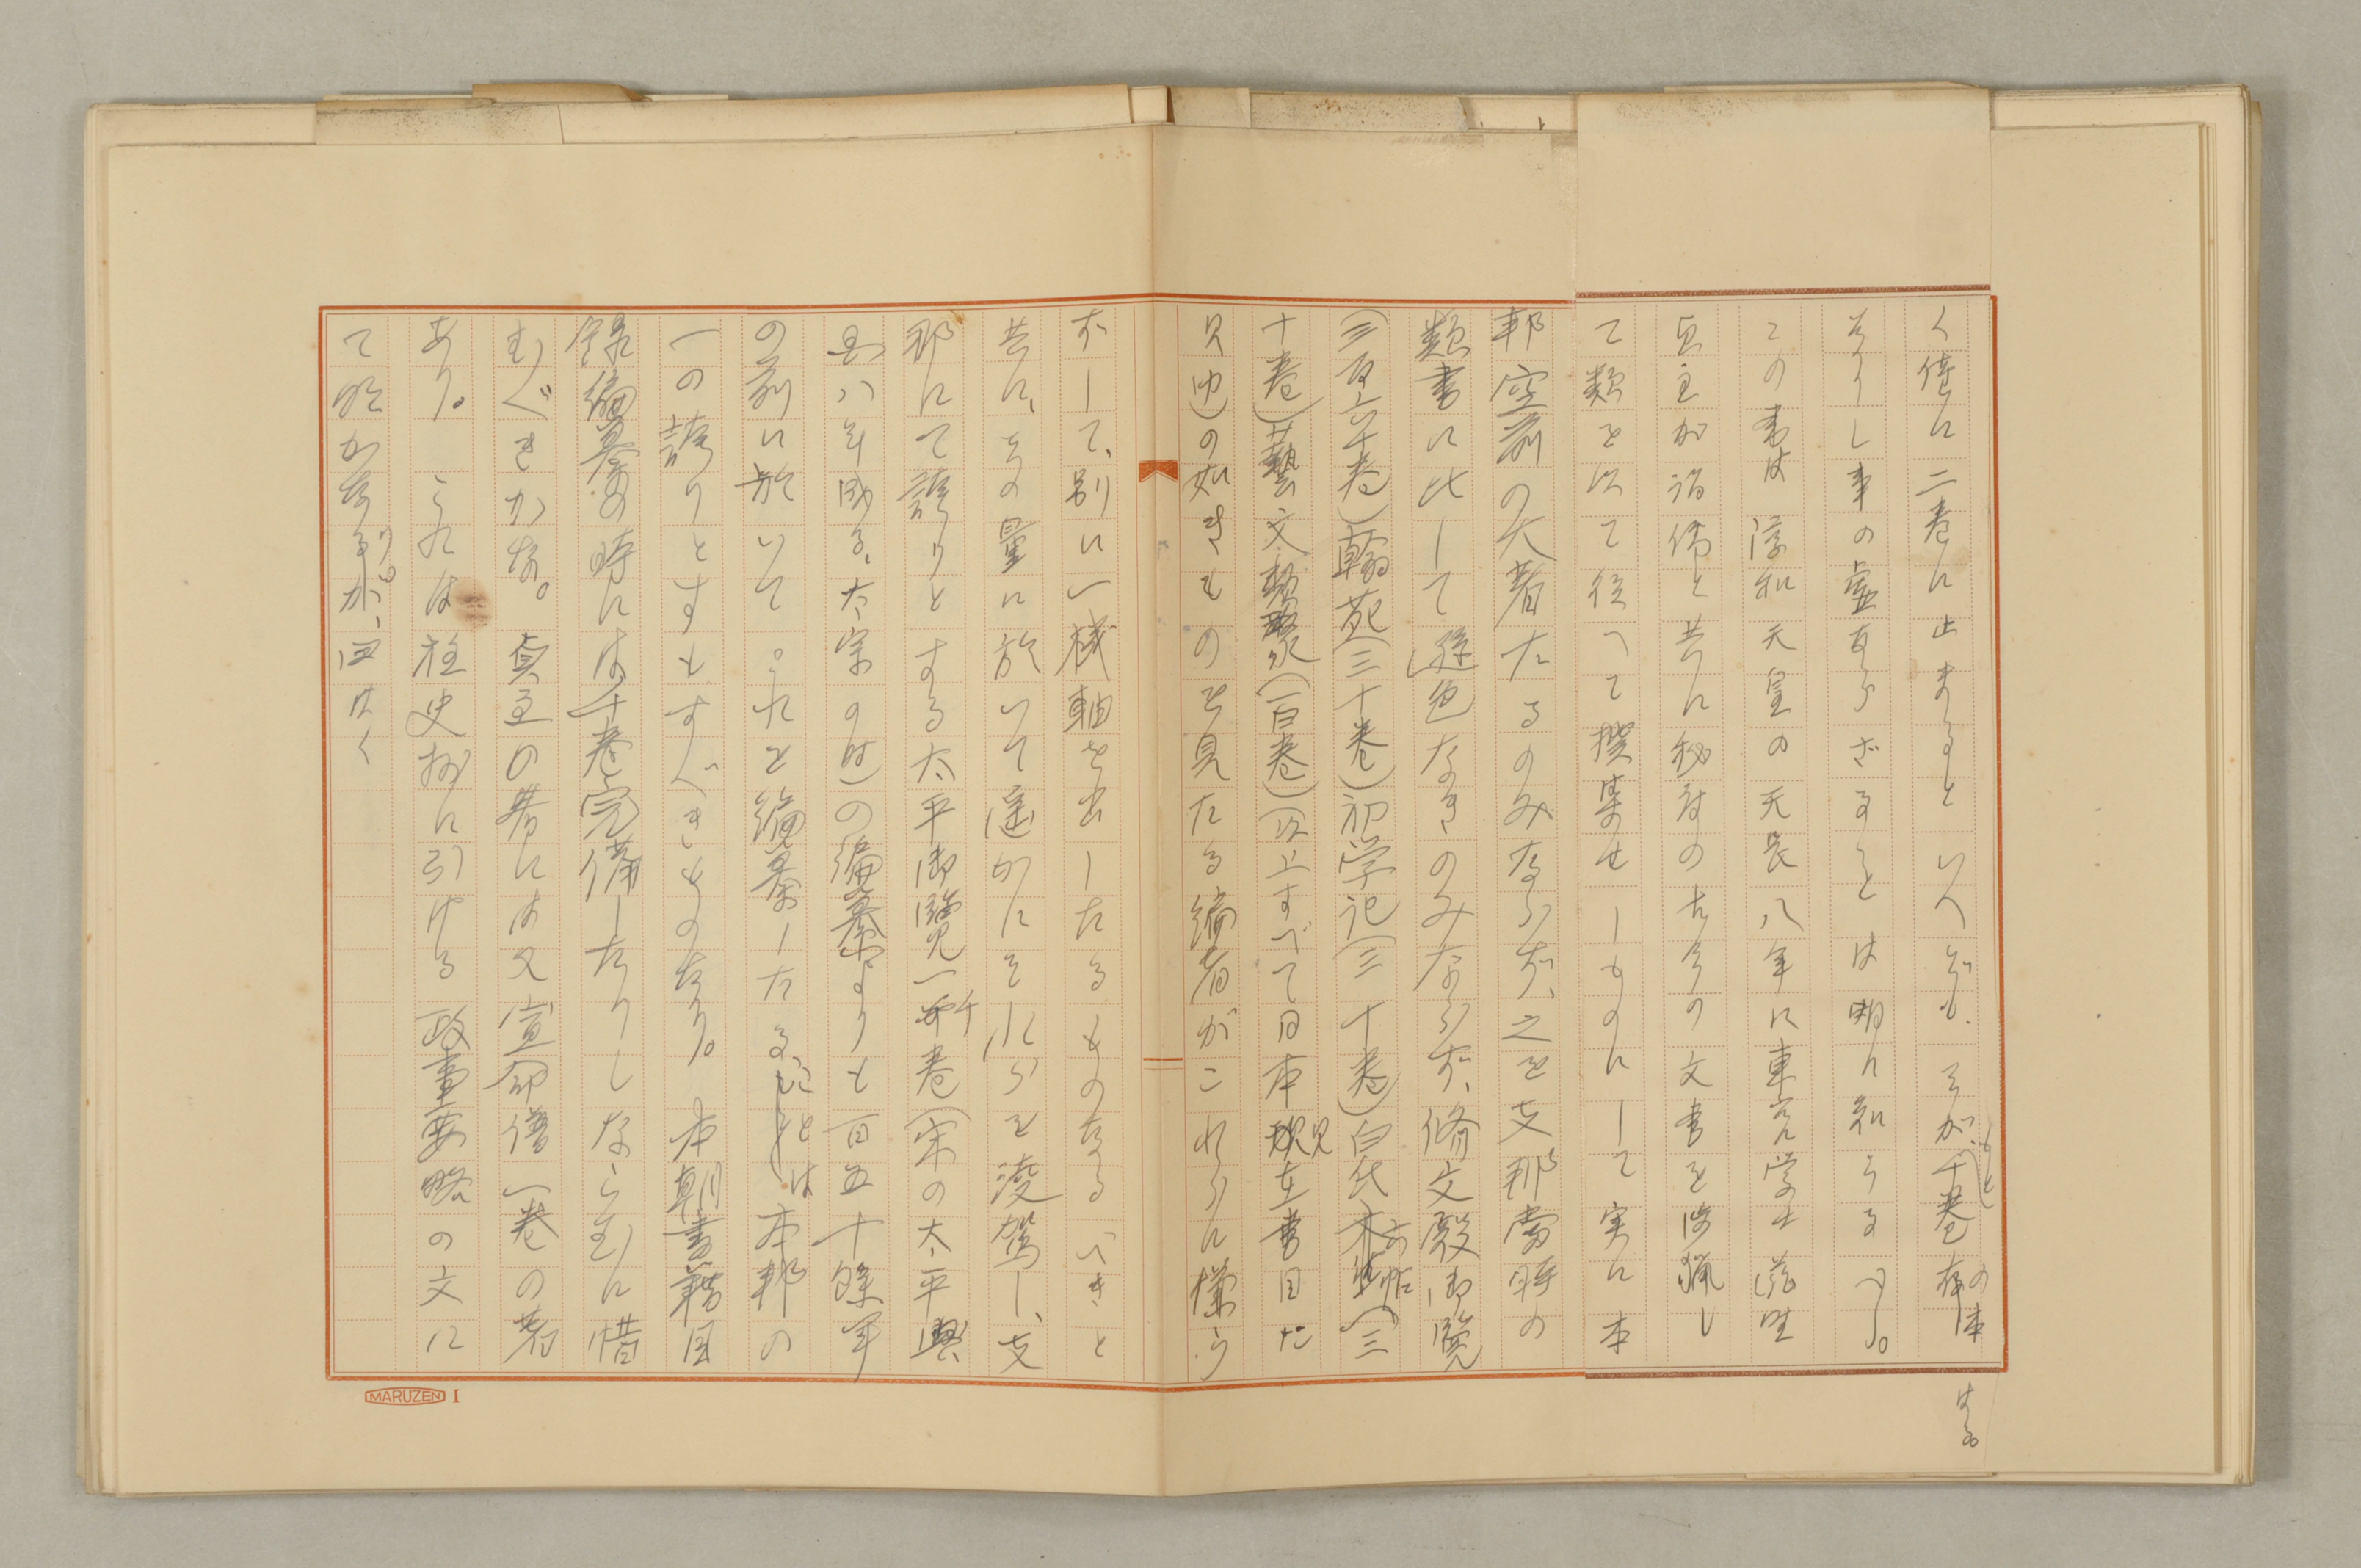 く僅に二巻に止まるといへども、そが(もと)千巻の本
なりし事の虚ならざることは明に知らるべし。
この書は淳和天皇の天長八年に東宮学士滋野
貞主が諸儒と共に秘府の古今の文書を渉猟し
て類を以て従へて撰集せしものにして実に本
邦空前の大著たるのみならず、之を支那当時の
類書に比して遜色なきのみならず、修文殿御覧
(三百六十巻)翰苑(三十巻)初学記(三十巻)白氏六帖(三
十巻)藝文類聚(百巻)(以上すべて日本現在書目に
見ゆ)の如きものを見たる編者がこれらに慊ら
ずして、別に一機軸を出したるものなるべきと
共に、その量に於いて遥かにそれらを凌駕し、支
那にて誇りとする太平御覧一千巻(宋の太平興
国八年成る、太宗の時)の編纂よりも百五十餘年
の前に於いてこれを編纂したることは本邦の
一の誇りとすもすべきものなり。本朝書籍目
録編纂の時には千巻完備したりしならむに惜
むべきかな。貞主の著には又宣命譜一巻の著
あり。これは柱史抄に引ける政事要略の文に
て明かなり。曰はく
はる
MARUZEN I